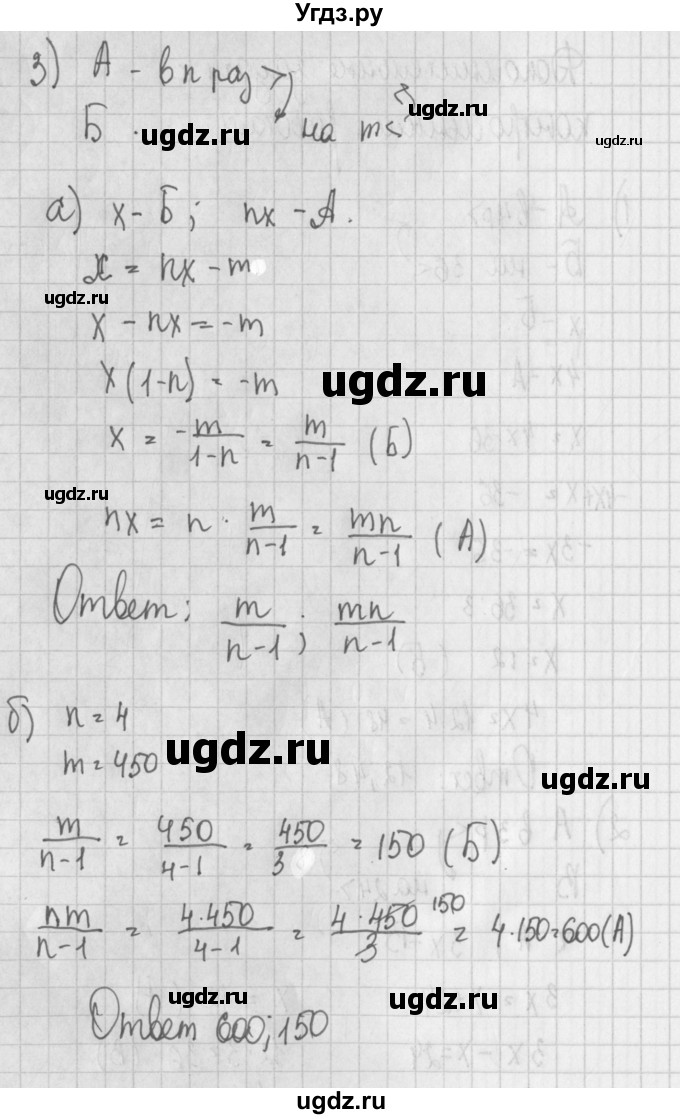 Угдз.ру
3) А - в п раз >
Б на m <
ugdz.ru
ugdz.ru
ugdz.ru
а) x - Б; nx - А.
x = nx - m
ugdz.ru
x - nx = -m
x(1-n) = -m
ugdz.ru
x = -m/(1-n) = m/(n-1) (Б)
ugdz.ru
nx = n · m/(n-1) = mn/(n-1) (А)
Ответ: m/(n-1); mn/(n-1)
б) n = 4
m = 450
ugdz.ru
ugdz.ru
m/(n-1) = 450/(4-1) = 450/3 = 150 (Б)
nm/(n-1) = 4·450/(4-1) = 4·450/3 150 = 4·150=600(А)
ugdz.ru
ugdz.ru
Ответ 600; 150
ugdz.ru